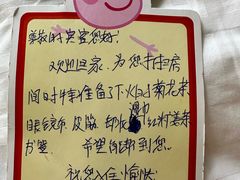 尊敬的宾客您好:
欢迎回家,为您打扫房
间时特准备了下火的菊花茶
眼镜布 皮筋 却 红树姜茶
书签 希望能帮到您。
祝您入住愉快!